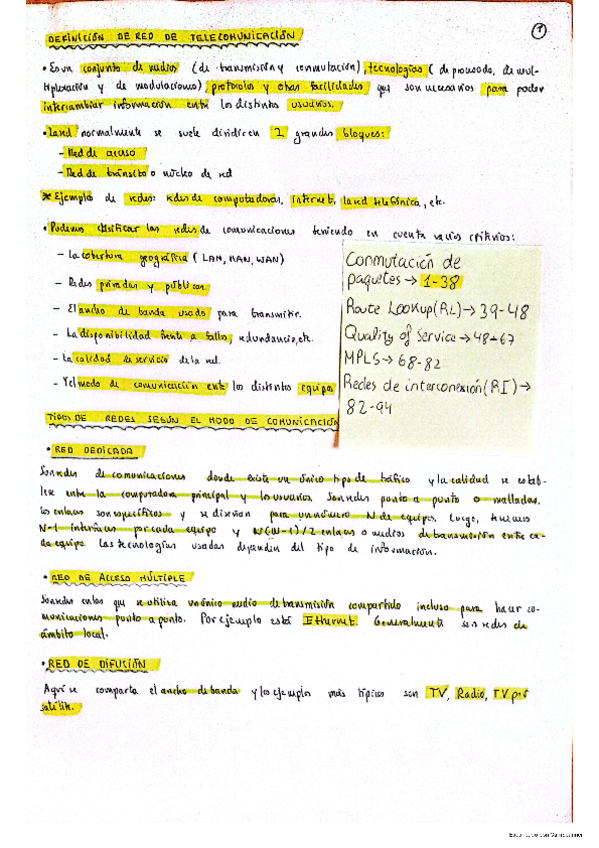 1
DEFINICIÓN DE RED DE TELECOMUNICACIÓN
• Es un conjunto de medios (de transmisión y conmutación), tecnologías (de procesado, de mul-
tiplexación y de modulaciones), protocolos y otras facilidades que son necesarios para poder
intercambiar información entre los distintos usuarios.
• La red normalmente se suele dividir en 2 grandes bloques:
- Red de acceso
- Red de tránsito o núcleo de red
* Ejemplo de redes: redes de computadoras, internet, la red telefónica, etc.
• Podemos clasificar las redes de comunicaciones teniendo en cuenta varios criterios:
- La cobertura geográfica (LAN, MAN, WAN)
- Redes privadas y públicas
- El ancho de banda usado para transmitir.
- La disponibilidad frente a fallos, redundancia, etc.
- La calidad de servicio de la red.
- Y el modo de comunicación entre los distintos equipos
Conmutación de
paquetes → 1-38
Route Lookup (RL) → 39-48
Quality of Service → 48-67
MPLS → 68-82
Redes de interconexión (RI) →
82-94
TIPOS DE REDES SEGÚN EL MODO DE COMUNICACIÓN
• RED DEDICADA
Son redes de comunicaciones donde existe un único tipo de tráfico y la calidad se estab-
lece entre la computadora principal y los usuarios. Son redes punto a punto o malladas.
Los enlaces son específicos y se diseñan para un número N de equipos. Luego, tenemos
N-1 interfaces por cada equipo y N(N-1)/2 enlaces o medios de transmisión entre ca-
da equipo. Las tecnologías usadas dependen del tipo de información.
• RED DE ACCESO MÚLTIPLE
Son redes en las que se utiliza un único medio de transmisión compartido incluso para hacer co-
municaciones punto a punto. Por ejemplo está Ethernet. Generalmente son redes de
ámbito local.
• RED DE DIFUSIÓN
Aquí se comparte el ancho de banda y los ejemplos más típicos son TV, Radio, TV por
satélite.